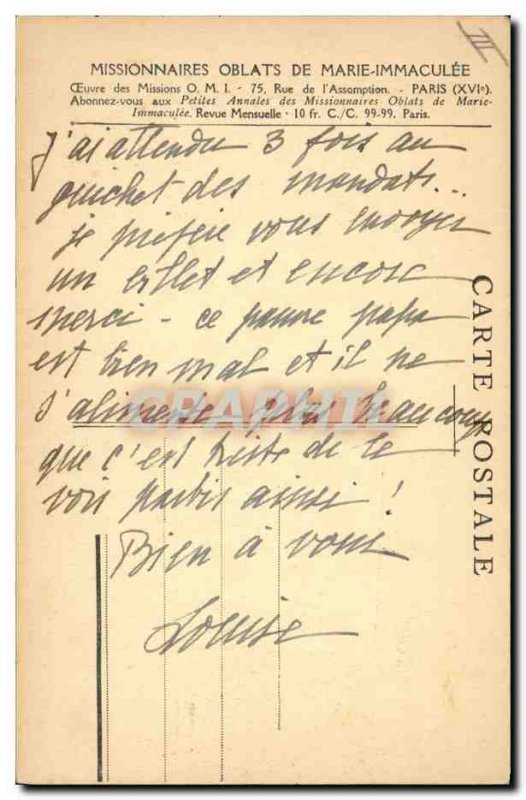 III
MISSIONNAIRES OBLATS DE MARIE-IMMACULÉE
Œuvre des Missions O. M. I. - 75, Rue de l'Assomption. - PARIS (XVIe).
Abonnez-vous aux Petites Annales des Missionnaires Oblats de Marie-
Immaculée. Revue Mensuelle - 10 fr. C./C. 99-99. Paris.
J'ai attendu 3 fois au
guichet des mandats...
je préfère vous envoyer
un billet et encore
merci - ce pauvre papa
est bien mal et il ne
s'alimente plus beaucoup
que c'est triste de le
voir partir ainsi !
Bien à vous
Louise
CARTE POSTALE
CPARAMA